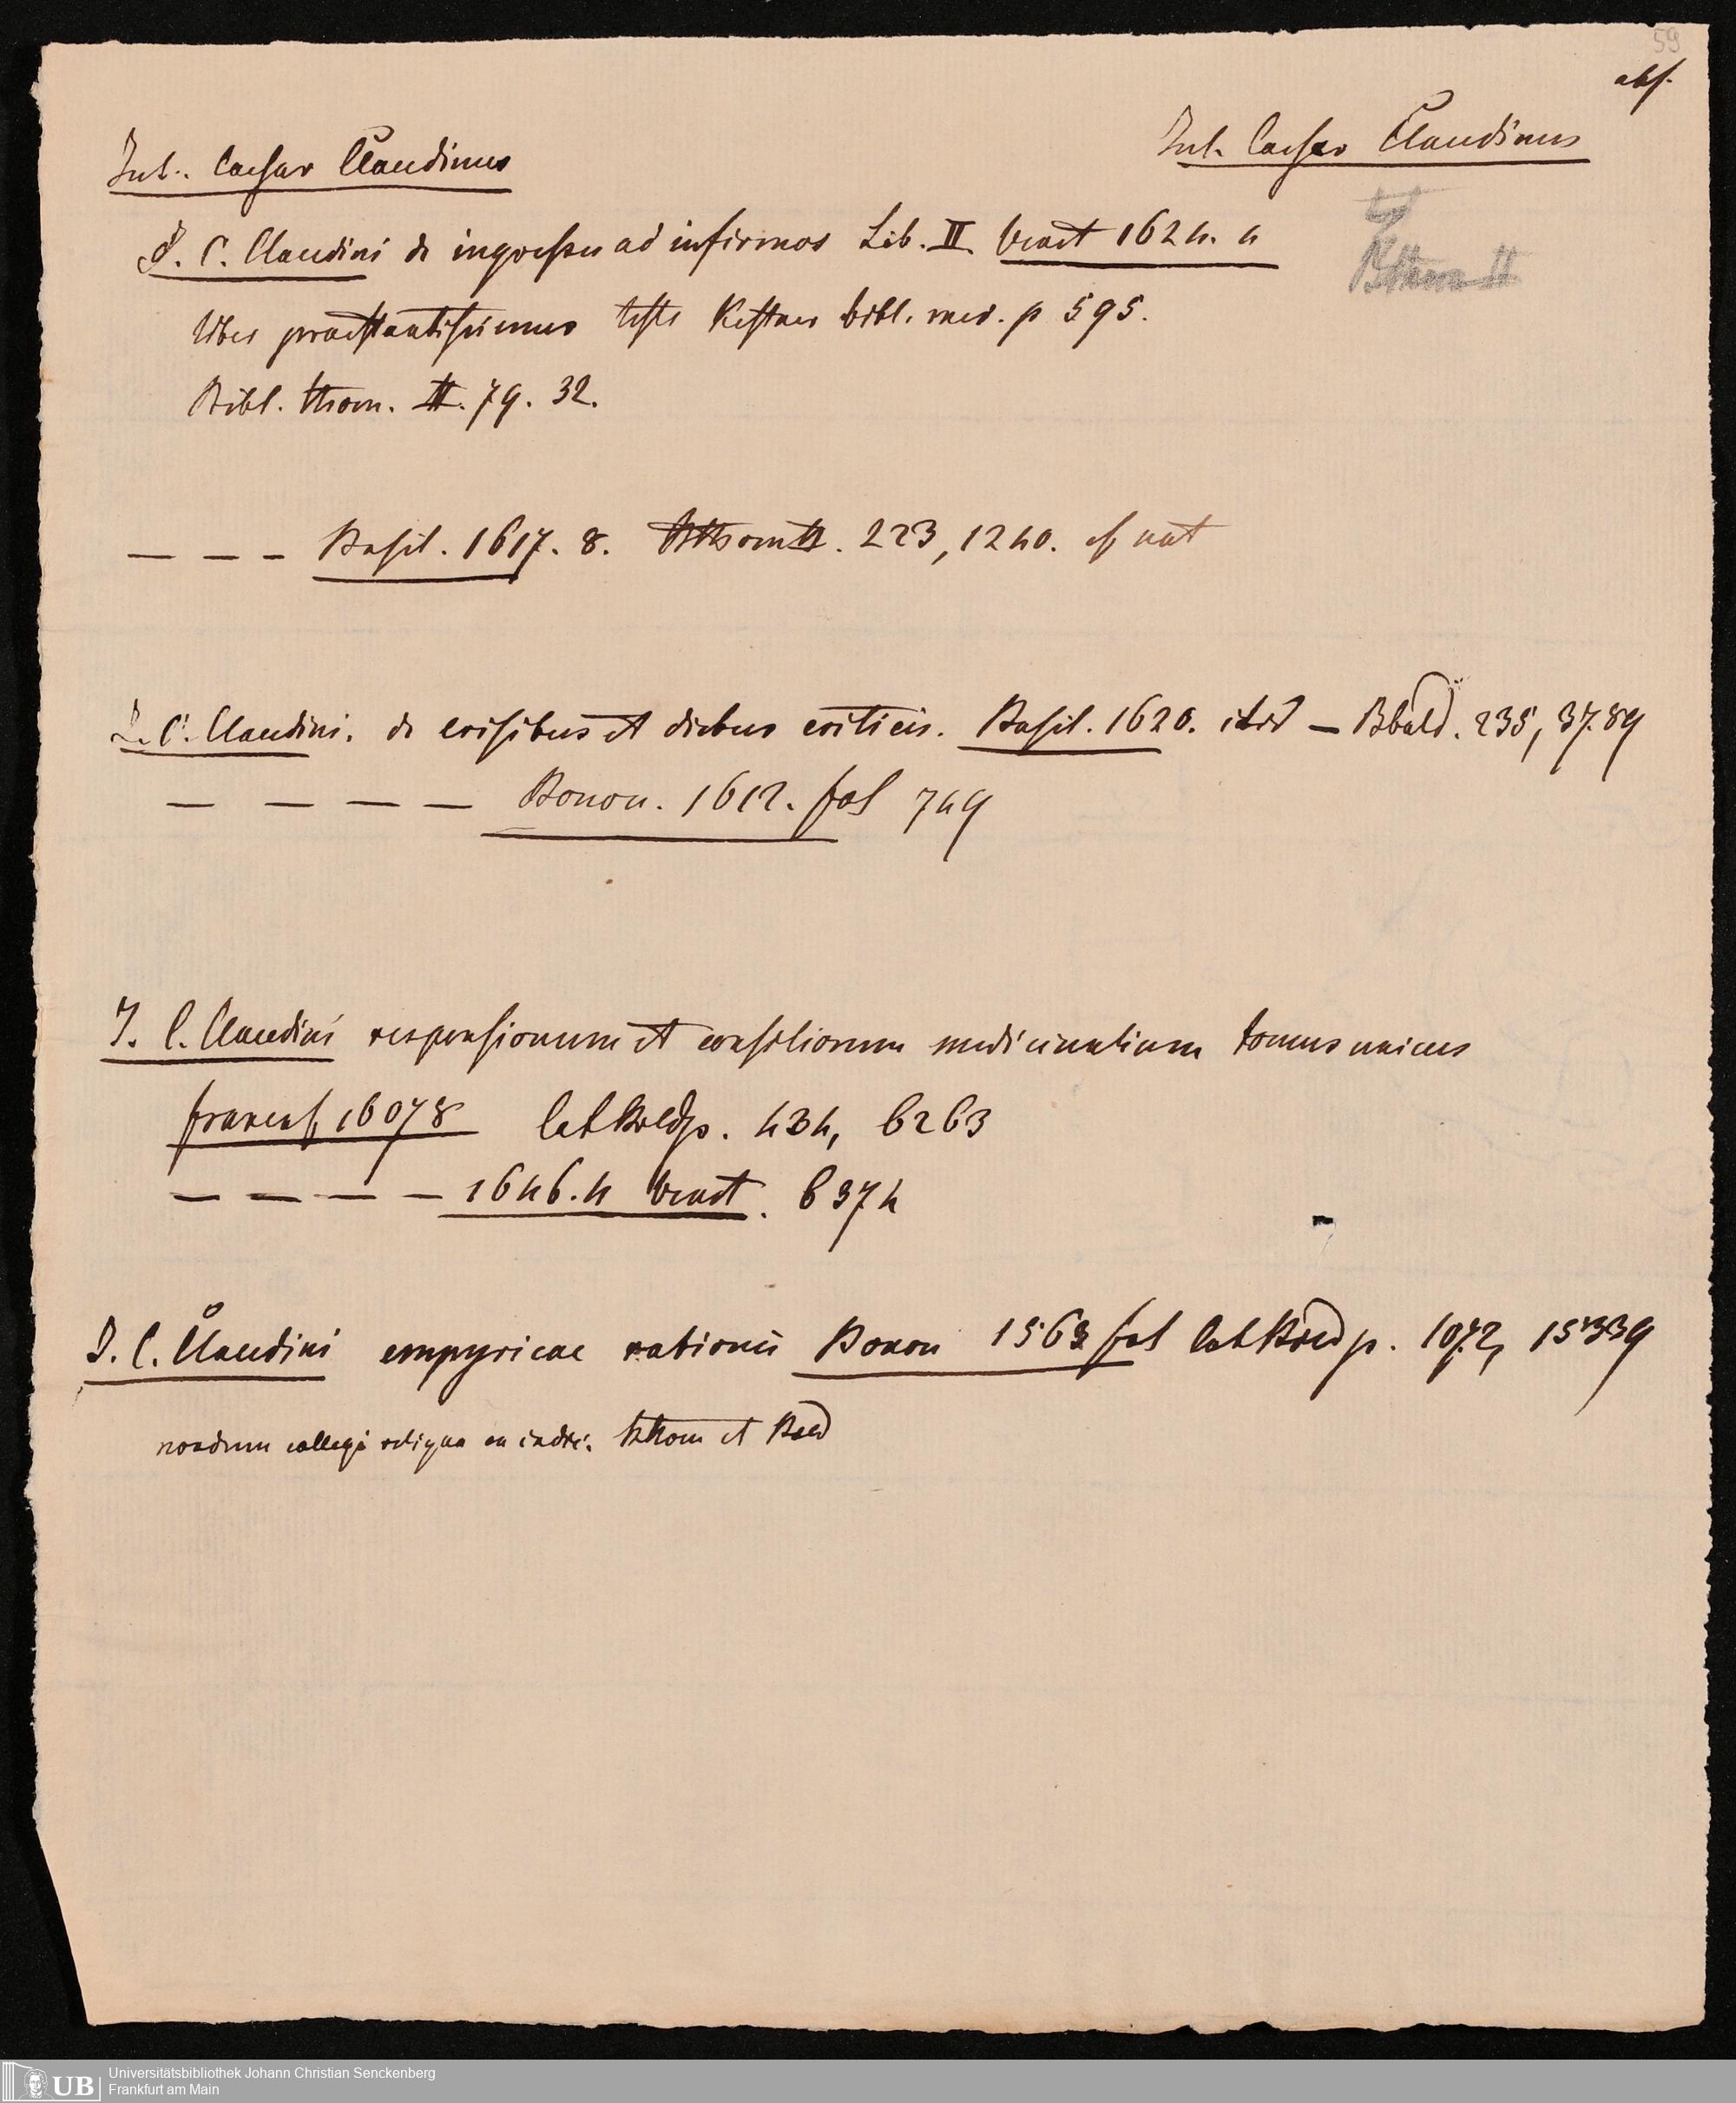 59
abs.
Jul. Caesar Claudinus
Jul. Caesar Claudinus
J. C. Claudini de ingressu ad infirmos Lib. II. venet 1624. 4
BThom II
liber praestantissimus teste Kestner bibl. med. p 595.
Bibl. thom. II. 79. 32.
— — — Basil. 1617. 8. BThom II. 223, 1240.
J. C. Claudini. de crisibus et diebus criticis. Basil. 1620. ibid — Bbald. 235, 3789
— — — — Bonon. 1612. fol 749
J. C. Claudini responsionum et consiliorum medicinalium tomus unicus
francof 1607 8 Cat Bald p. 434, 6263
— — — — 1646. 4 venet. 6374
J. C. Claudini empyricae rationis Bonon 1563 fol Cat Bald p. 1072, 15339
nondum collegi reliqua ex indic. BThom et Bald
UB
Universitätsbibliothek Johann Christian Senckenberg
Frankfurt am Main